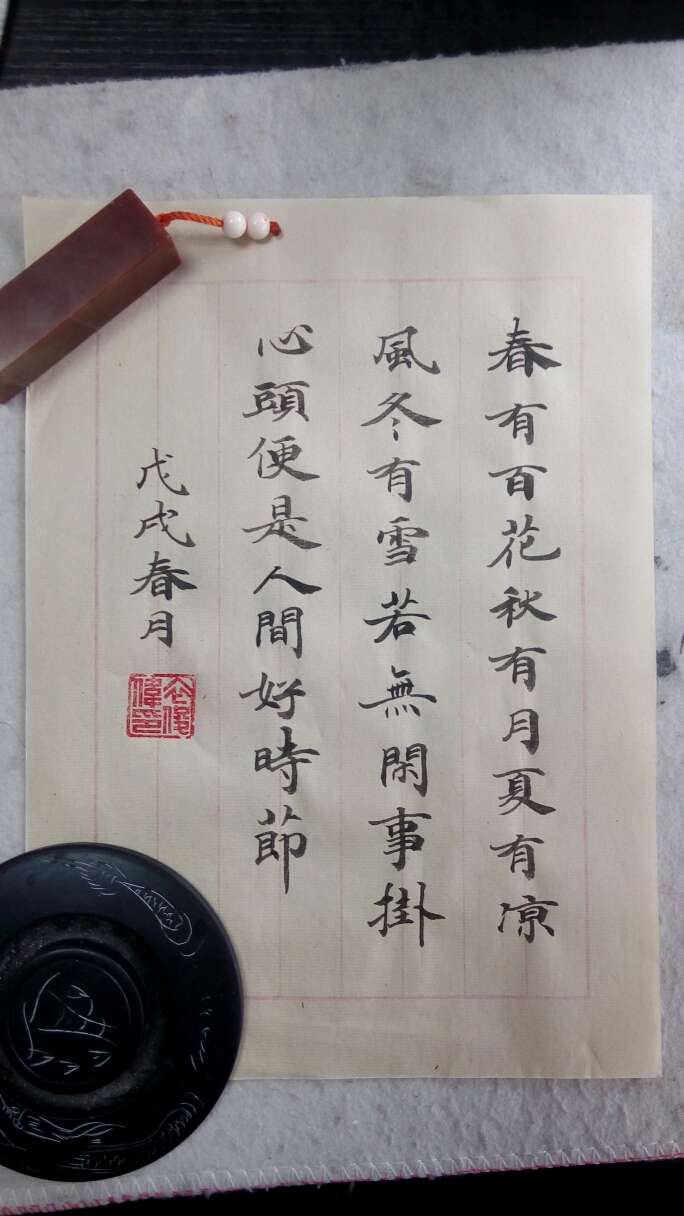 春有百花秋有月夏有凉
風冬有雪若無閑事掛
心頭便是人間好時節
戊戌春月